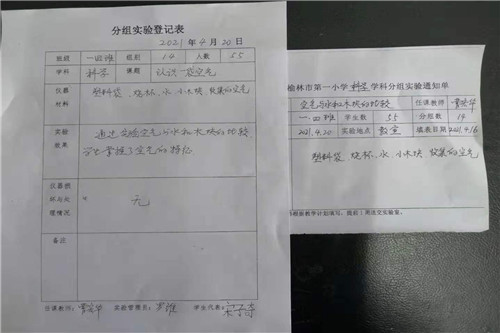 分组实验登记表
2021年4月20日
班级 一.四班 组别 14 人数 55
学科 科学 课题 认识一袋空气
仪器
材料
塑料袋、烧杯、水、小木块、收集的空气
实验
效果
通过实验空气与水和木块的比较
学生掌握了空气的特征
仪器损
坏与处
理情况
无
备注
任课教师: 实验管理员: 学生代表:
榆林市第一小学 科学 学科分组实验通知单
空气与水和木块的比较 任课教师
一.四班 学生数 55 分组数 14
2021.4.20 实验地点 教室 填表日期 2021.4.16
塑料袋、烧杯、水、小木块、收集的空气